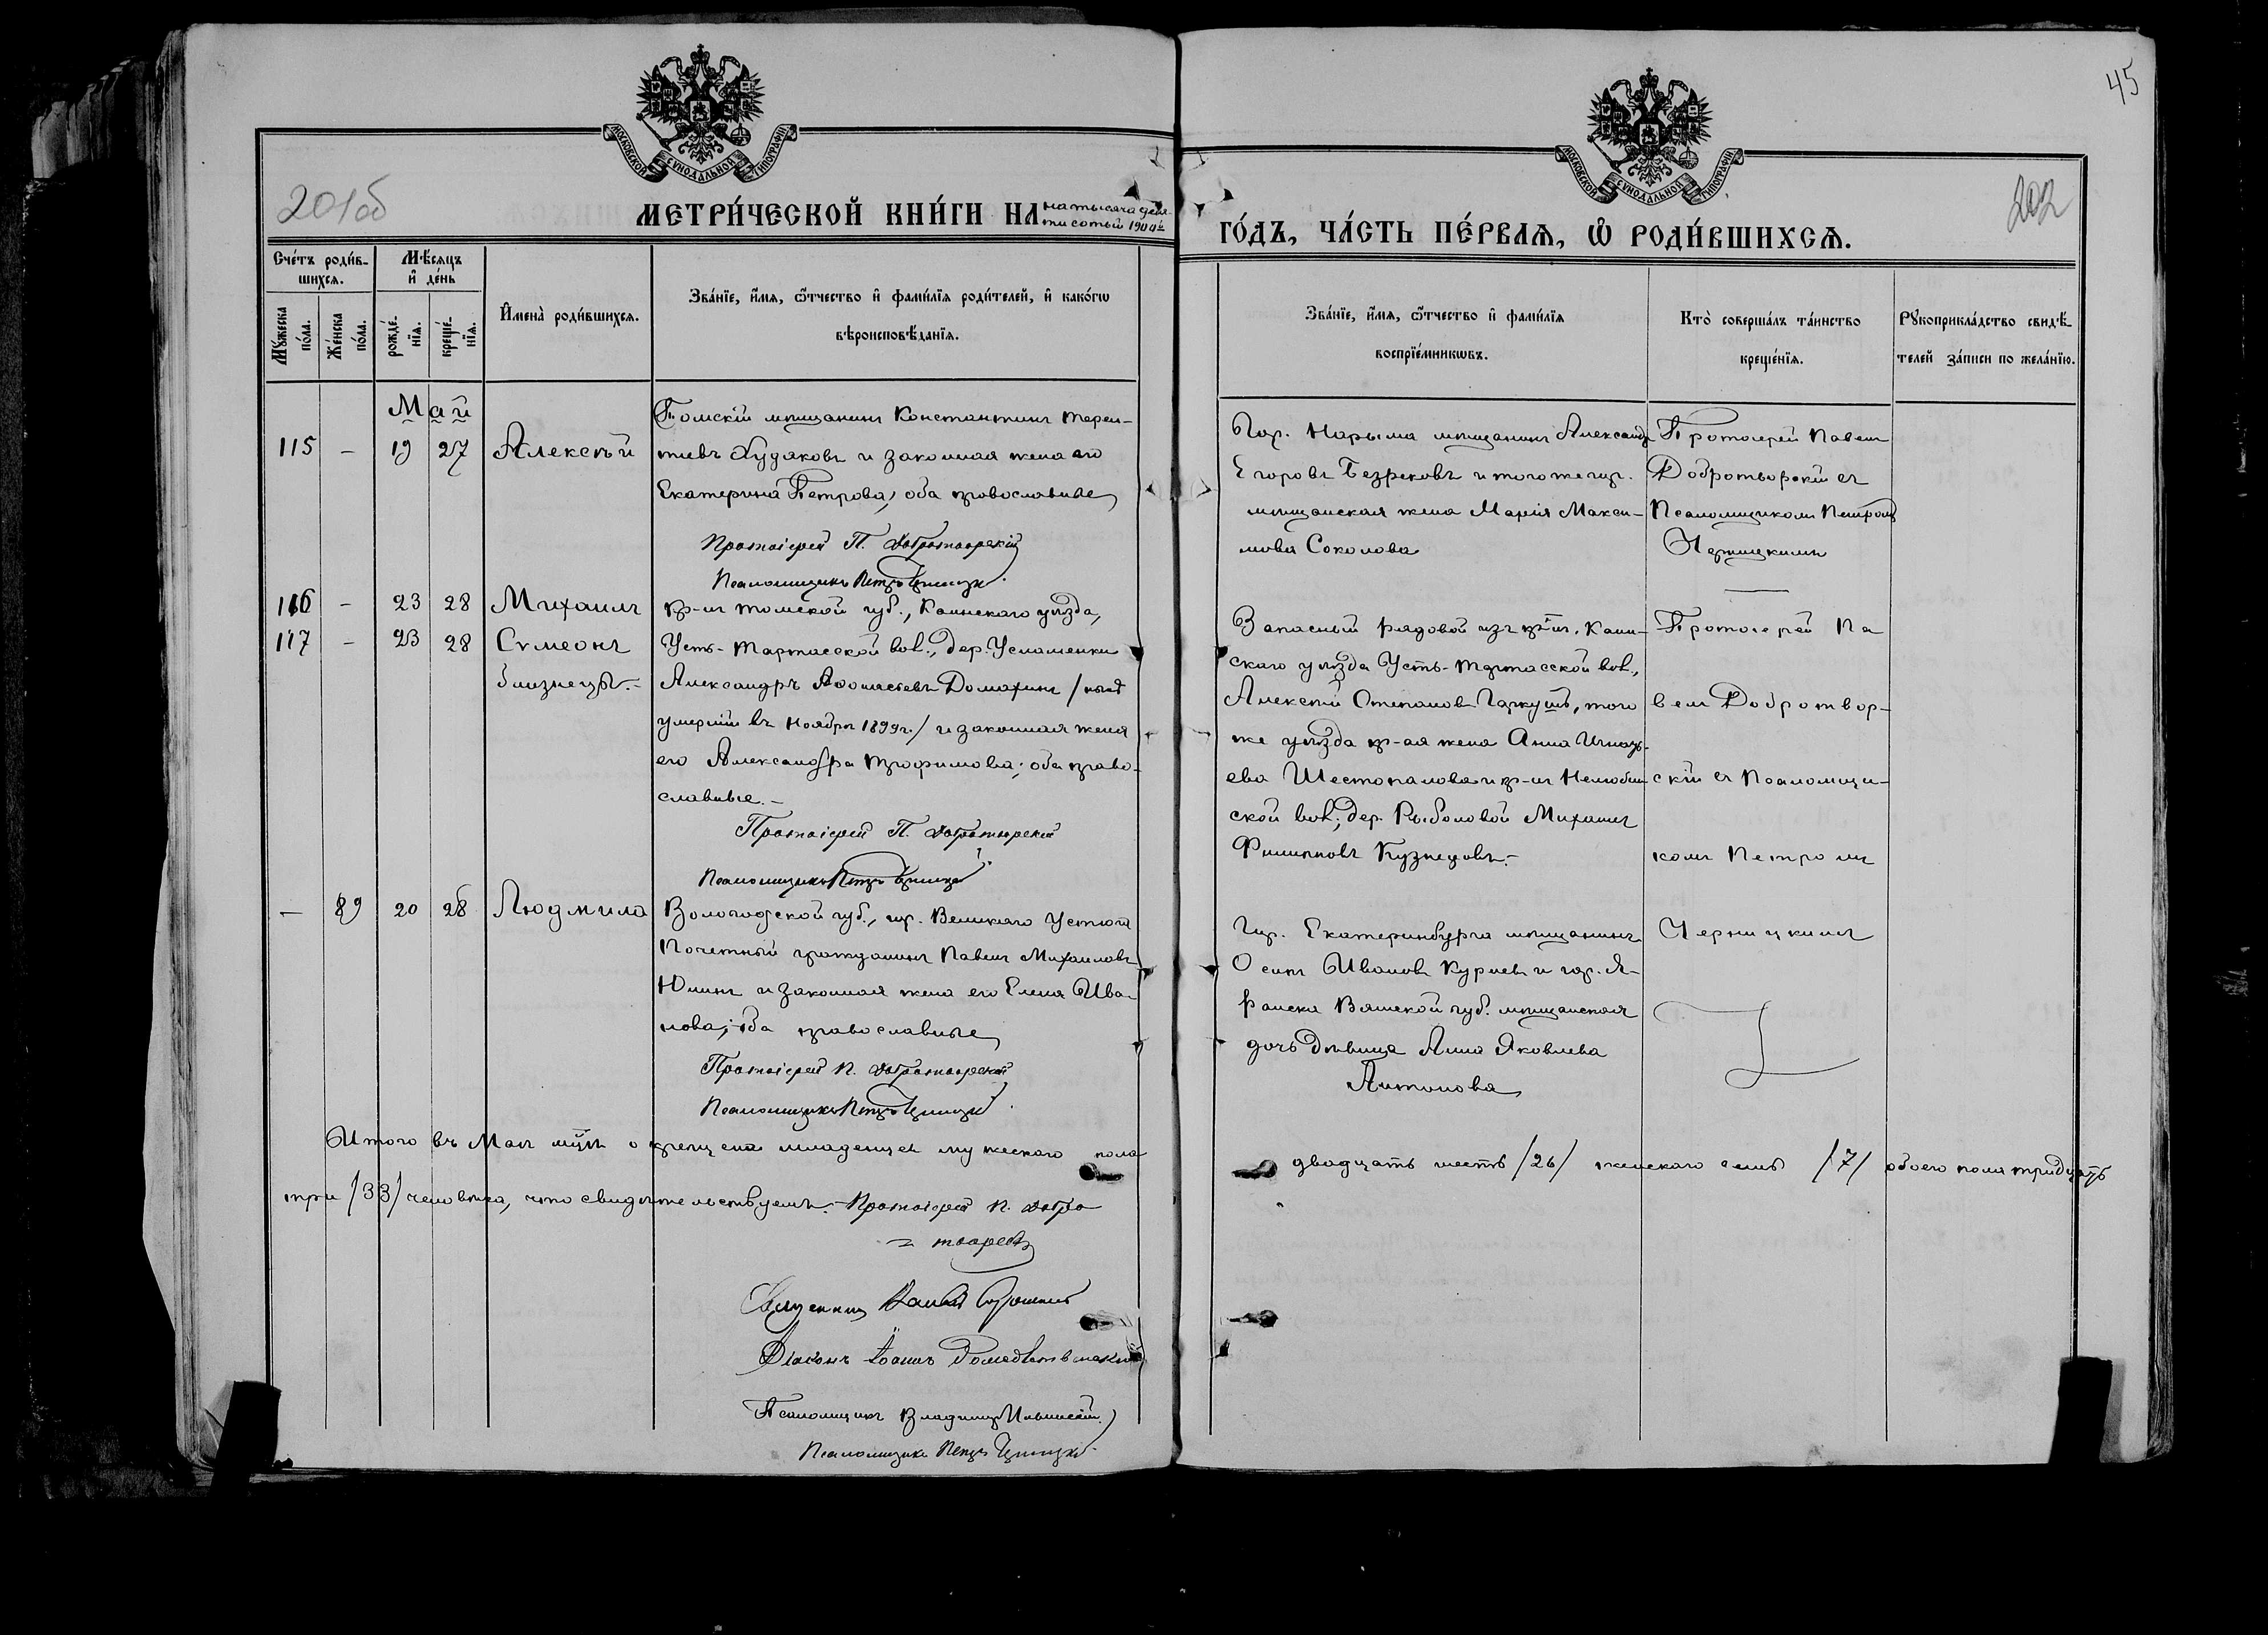 45
201об
202
МОСКОВСКОЙ СУНОДАЛЬНОЙ ТИПОГРАФІИ
МОСКОВСКОЙ СУНОДАЛЬНОЙ ТИПОГРАФІИ
МЕТРИ́ЧЕСКОЙ КНИ́ГИ НА на тысяча девя-
тисотый 1900й
ГО́ДЪ, ЧА́СТЬ ПЕ́РВАѦ, Ѡ РОДИ́ВШИХСѦ.
Сче́тъ роди́в-
шихсѧ.
Мѣ́сѧцъ
и҆ де́нь
Мꙋ́жеска
по́ла.
Же́нска
по́ла.
рожде́-
нїѧ.
креще́-
нїѧ.
И҆мена̀ роди́вшихсѧ.
Зва́нїе, и҆́мѧ, ѻ҆́тчество и҆ фами́лїѧ роди́телей, и҆ како́гѡ
вѣроисповѣ́данїѧ.
Зва́нїе, и҆́мѧ, ѻ҆́тчество и҆ фами́лїѧ
воспрїе́мникѡвъ.
Кто̀ соверша́лъ та́инство
креще́нїѧ.
Рꙋкоприкла́дство свидѣ́-
телей за́писи по жела́нїю.
Май
115 – 19 27 Алексѣй
Томскій мѣщанинъ Константинъ Терен-
тьевъ Худяковъ и законная жена его
Екатерина Петрова, оба православные
Протоіерей П. Добротворскій
Псаломщикъ Петръ Черницкій
Гор. Нарыма мѣщанинъ Александръ
Егоровъ Безрековъ и того же гор.
мѣщанская жена Марія Макси-
мова Соколова
Протоіерей Павелъ
Добротворскій съ
Псаломщикомъ Петромъ
Черницкимъ
116 – 23 28 Михаилъ
117 – 23 28 Сѵмеонъ
близнецы.-
кр-нъ Томской губ., Каинскаго уѣзда,
Усть-Тартасской вол., дер. Усламенки
Александръ Аѳонасьевъ Домахинъ /нынѣ
умершій въ Ноябрѣ 1899 г./ и законная жена
его Александра Трофимова; оба право-
славные.-
Протоіерей П. Добротворскій
Псаломщикъ Петръ Черницкій
Запасный рядовой изъ кр-нъ, Каин-
скаго уѣзда Усть-Тартасской вол.,
Алексѣй Степановъ Гаркушъ, того
же уѣзда кр-ая жена Анна Игнать-
ева Шестопалова и кр-нъ Нелюбин-
ской вол., дер. Рыболовой Михаилъ
Филипповъ Кузнецовъ.-
Протоіерей Па
велъ Добротвор-
скій съ Псаломщи-
комъ Петромъ
Черницкимъ
– 89 20 28 Людмила
Вологодской губ., гор. Великаго Устюга
Почетный гражданинъ Павелъ Михаиловъ
Юшинъ и законная жена его Елена Ива-
нова; оба православные
Протоіерей П. Добротворскій
Псаломщикъ Петръ Черницкій
Гор. Екатеринбурга мѣщанинъ
Осипъ Ивановъ Курневъ и гор. Я-
ранска Вятской губ. мѣщанская
дочь дѣвица Анна Яковлева
Антонова
Итого въ Маѣ мцѣ окрещено младенцевъ мужескаго пола двадцать шесть /26/ женскаго семь /7/ обоего пола тридцать
три /33/ человѣка, что свидѣтельствуемъ.- Протоіерей П. Добро
творскій
Священникъ
Діаконъ Іоаннъ
Псаломщикъ Владиміръ Ильинскій
Псаломщикъ Петръ Черницкій